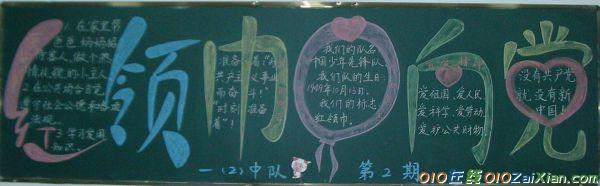 红领巾心向党
1. 在家里帮
爸爸妈妈
做个热
情
小主人
2. 在公共场合自觉
遵守社会公德和各项
法规。
3. 学习爱国
知识。
准备着：“为
共产主义事业
而奋斗！”
“时刻准备
着！”
我们的队名
中国少年先锋队
我们队的生日：
1949年10月13日。
我们的标志：
红领巾。
爱祖国、爱人民
爱科学、爱劳动、
爱护公共财物
没有共产党
就没有新
中国！
一(2)中队
第2期
010在线 010ZaiXian.com